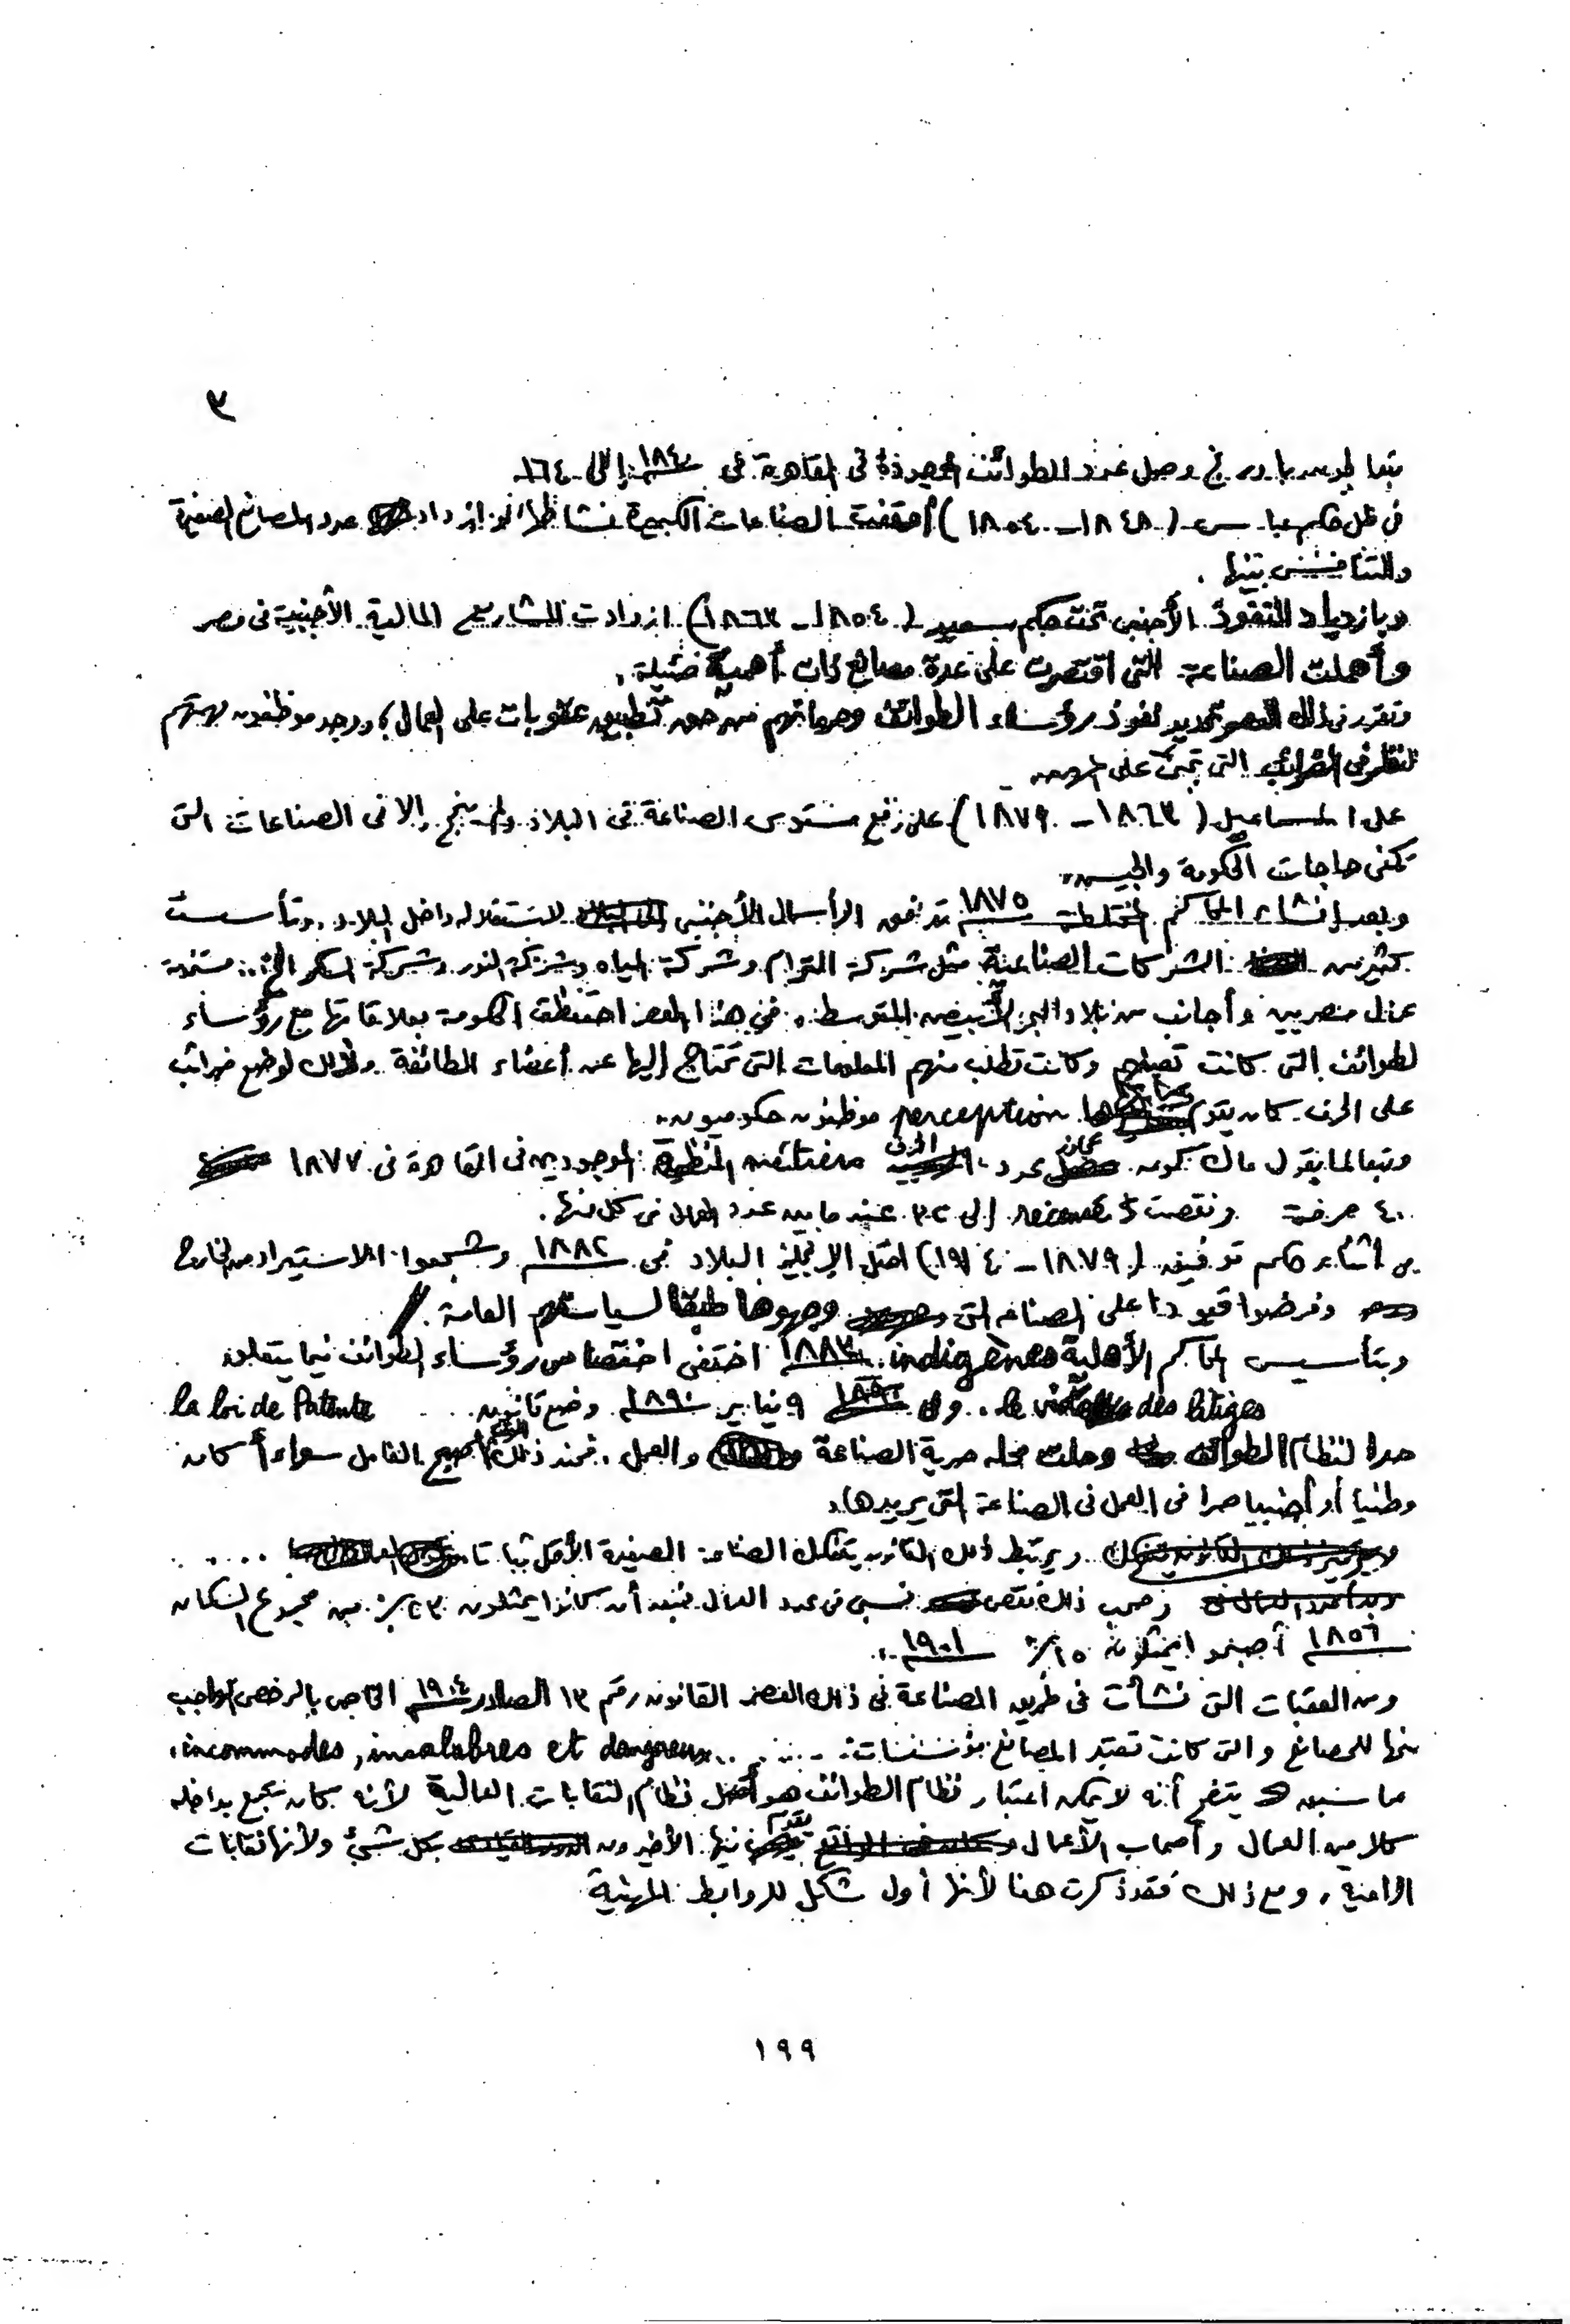 ٣
تبعا لجومار باورنج وصل عدد الطوائف الموجودة فى القاهرة فى ١٨٤٠ إلى ١٦٤
فى ظل حكم عباس (١٨٤٨ - ١٨٥٤) أختفت الصناعات الكبيرة ازداد عدد المصانع الصغيرة
والتنافس بينها .
وبازدياد النفوذ الأجنبى تحت حكم سعيد (١٨٥٤ - ١٨٦٣) ازدادت المشاريع المالية الأجنبية فى مصر
وأهملت الصناعة التى اقتصرت على عدة مصانع ذات أهمية ضئيلة .
وتقرر فى ذلك العصر تحديد نفوذ رؤساء الطوائف وحرمانهم من حق تطبيق عقوبات على العمال ووجد موظفون مهمتهم
النظر فى الضرائب التى تجبى على
عمل اسماعيل (١٨٦٣ - ١٨٧٩) على رفع مستوى الصناعة فى البلاد ولم ينجح إلا فى الصناعات التى
تكفى حاجات الحكومة والجيش
وبعد إنشاء المحاكم المختلطة ١٨٧٥ تدفق الرأسمال الأجنبى لاستغلاله داخل البلاد . وتأسست
كثير من الشركات الصناعية مثل شركة الترام وشركة المياه وشركة النور وشركة السكر الخ .. مستخدمة
عمال مصريين وأجانب من بلاد البحر الأبيض المتوسط . ففى هذا العصر احتفظت الحكومة بعلاقاتها مع رؤساء
لطوائف التى كانت وكانت تطلب منهم المعلومات التى تحتاج إليها عن أعضاء الطائفة وكذلك لوضع ضرائب
على الحرف كان يتو perception موظفون حكوميون ..
وتبعا لما يقول كان عدد الحرف métiers المنظمة الموجودين فى القاهرة فى ١٨٧٧
٤٠ حرفة ونقصت إلى ٣٢ عدد العمال فى كل منها .
من أثناء حكم توفيق (١٨٧٩ - احتل الإنجليز البلاد فى ١٨٨٢ وشجعوا الاستيراد من الخارج
وفرضوا قيودا على الصناعه التى وجهوها طبقا لسياستهم العامة .
وبتأسيس المحاكم الأهلية indigènes ١٨٨٣ اختفى اختصاص رؤساء الطوائف فيما يتعلق
le des litiges .. وفى ٩ يناير ١٨٩٠ وضع قانون la loi de Patente
حدا لنظام الطوائف وحلت محله حرية الصناعة والعمل . فمنذ ذلك أصبح العامل سواء أكان
وطنيا أو أجنبيا حرا فى العمل فى الصناعة التى يريدها .
ويرتبط ذلك القانون بتفكك الصناعة الصغيرة الأقل ثباتا ....
وصحب ذلك نقص نسبى فى عدد العمال فبعد أن كانوا يمثلون ٢٣٪ من مجموع السكان
١٨٥٦ أصبحوا يمثلون ١٥٪ ١٩٠١ ..
ومن العقبات التى نشأت فى طريق الصناعة فى ذلك العصر القانون رقم ١٣ الصادر ١٩٠٤ الخاص بالرخص الواجب
منحها للمصانع والتى كانت تعتبر المصانع مؤسسات .... incommodes, insalubres et dangereux.
مما سبق يتضح أنه لا يمكن اعتبار نظام الطوائف هو أصل نظام النقابات العمالية لأنه كان يجمع بداخله
كلا من العمال وأصحاب الأعمال يقوم فيها الأخيرون بكل شئ ولأنها نقابات
الزامية . ومع ذلك فقد ذكرت هنا لأنها أول شكل للروابط المهنية
١٩٩